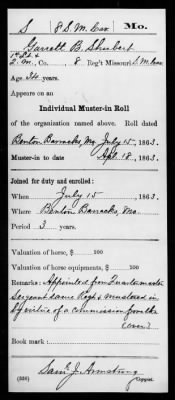 S | 8 S. M. Cav. | Mo.
Garrett B. Shubert
1st Lt &
2. m., Co. , 8 Reg't Missouri S. M. Cav.
Age 34 years.
Appears on an
Individual Muster-in Roll
of the organization named above. Roll dated
Benton Barracks, Mo July 15, 1863.
Muster-in to date Sept. 18, 1863.
Joined for duty and enrolled:
When July 15, 1863.
Where Benton Barracks, Mo.
Period 3 years.
Valuation of horse, $ 100
Valuation of horse equipments, $ 100
Remarks: Appointed from Quartermaster
Sergeant same Reg't & mustered in
by virtue of a commission from the
(over)
Book mark:
Saml. J. Armstrong
(336) Copyist.